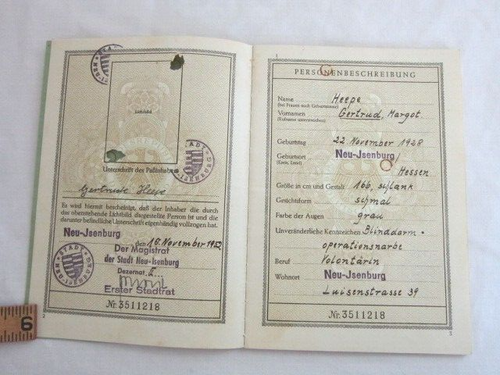 Lichtbild
Unterschrift des Paßinhabers
Gertrude Heepe
Es wird hiermit bescheinigt, daß der Inhaber die durch
das obenstehende Lichtbild dargestellte Person ist und die
darunter befindliche Unterschrift eigenhändig vollzogen hat.
Neu-Jsenburg den 10. November 1952
Der Magistrat
der Stadt Neu-Isenburg
Dezernat 2
Erster Stadtrat
Nr. 3511218
PERSONENBESCHREIBUNG
Name Heepe
(bei Frauen auch Geburtsname)
Vornamen Gertrud, Margot
(Rufname unterstreichen)
Geburtstag 22 November 1928
Geburtsort Neu-Jsenburg
(Kreis, Land) Hessen
Größe in cm und Gestalt 166, schlank
Gesichtsform schmal
Farbe der Augen grau
Unveränderliche Kennzeichen Blinddarm-
operationsnarbe
Beruf Volontärin
Wohnort Neu-Jsenburg
Luisenstrasse 39
Nr. 3511218
6